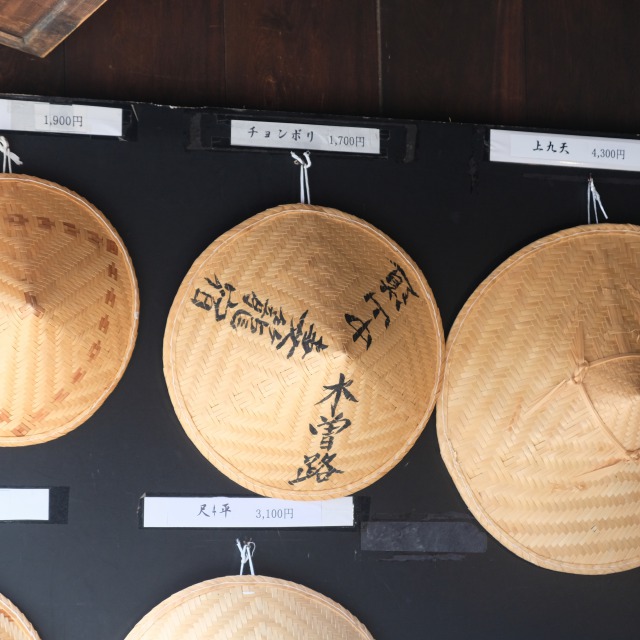 1,900円
チョンボリ 1,700円
上九天 4,300円
妻籠宿
木曽路
尺4平 3,100円